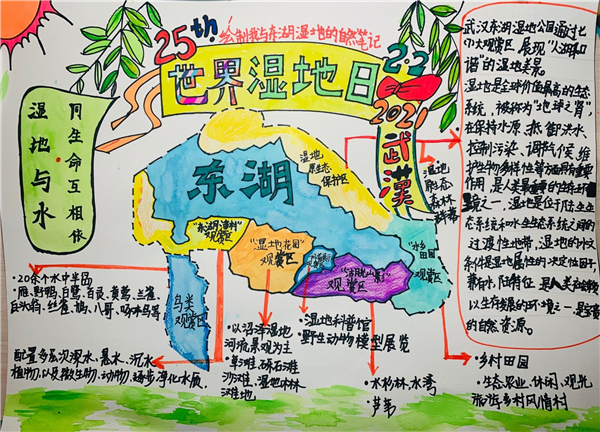 25th
绘制我与东湖湿地的自然笔记
世界湿地日
2.2
2021
武漢
湿地与水
同生命互相依
武汉东湖湿地公园通过七
个大观赏区,展现"人湖和
谐"的湿地美景。
湿地是全球价值最高的生态
系统,被称为"地球之肾"
在保持水源、抵御洪水、
控制污染、调节气候、维
护生物多样性等方面有重要
作用,是人类最重要的生存环
境之一,湿地是位于陆生生
态系统和水生生态系统之间的
过渡性地带,湿地的水文
条件是湿地属性的决定性因子,
的自然资源。
东湖
湿地
原生态
保护区
湿地
原态
森林
群落
"东湖渔村"
观赏区
"湿地花园"
观赏区
观赏区
"水乡
田园"
观赏区
鸟类
观赏区
·20余个水中半岛
·雁、野鸭、白鹭、百灵、黄莺、兰雀、
配置多层次深水、悬水、沉水
植物,以及微生物、动物,逐步净化水质。
·以沼泽湿地
河流景观为主
·草滩、砾石滩
沙滩、湿地林
滩地
·湿地科普馆
·野生动物模型展览
·水杉林、水湾
·芦苇
·乡村田园
·生态农业、休闲、观光
旅游乡村风情村